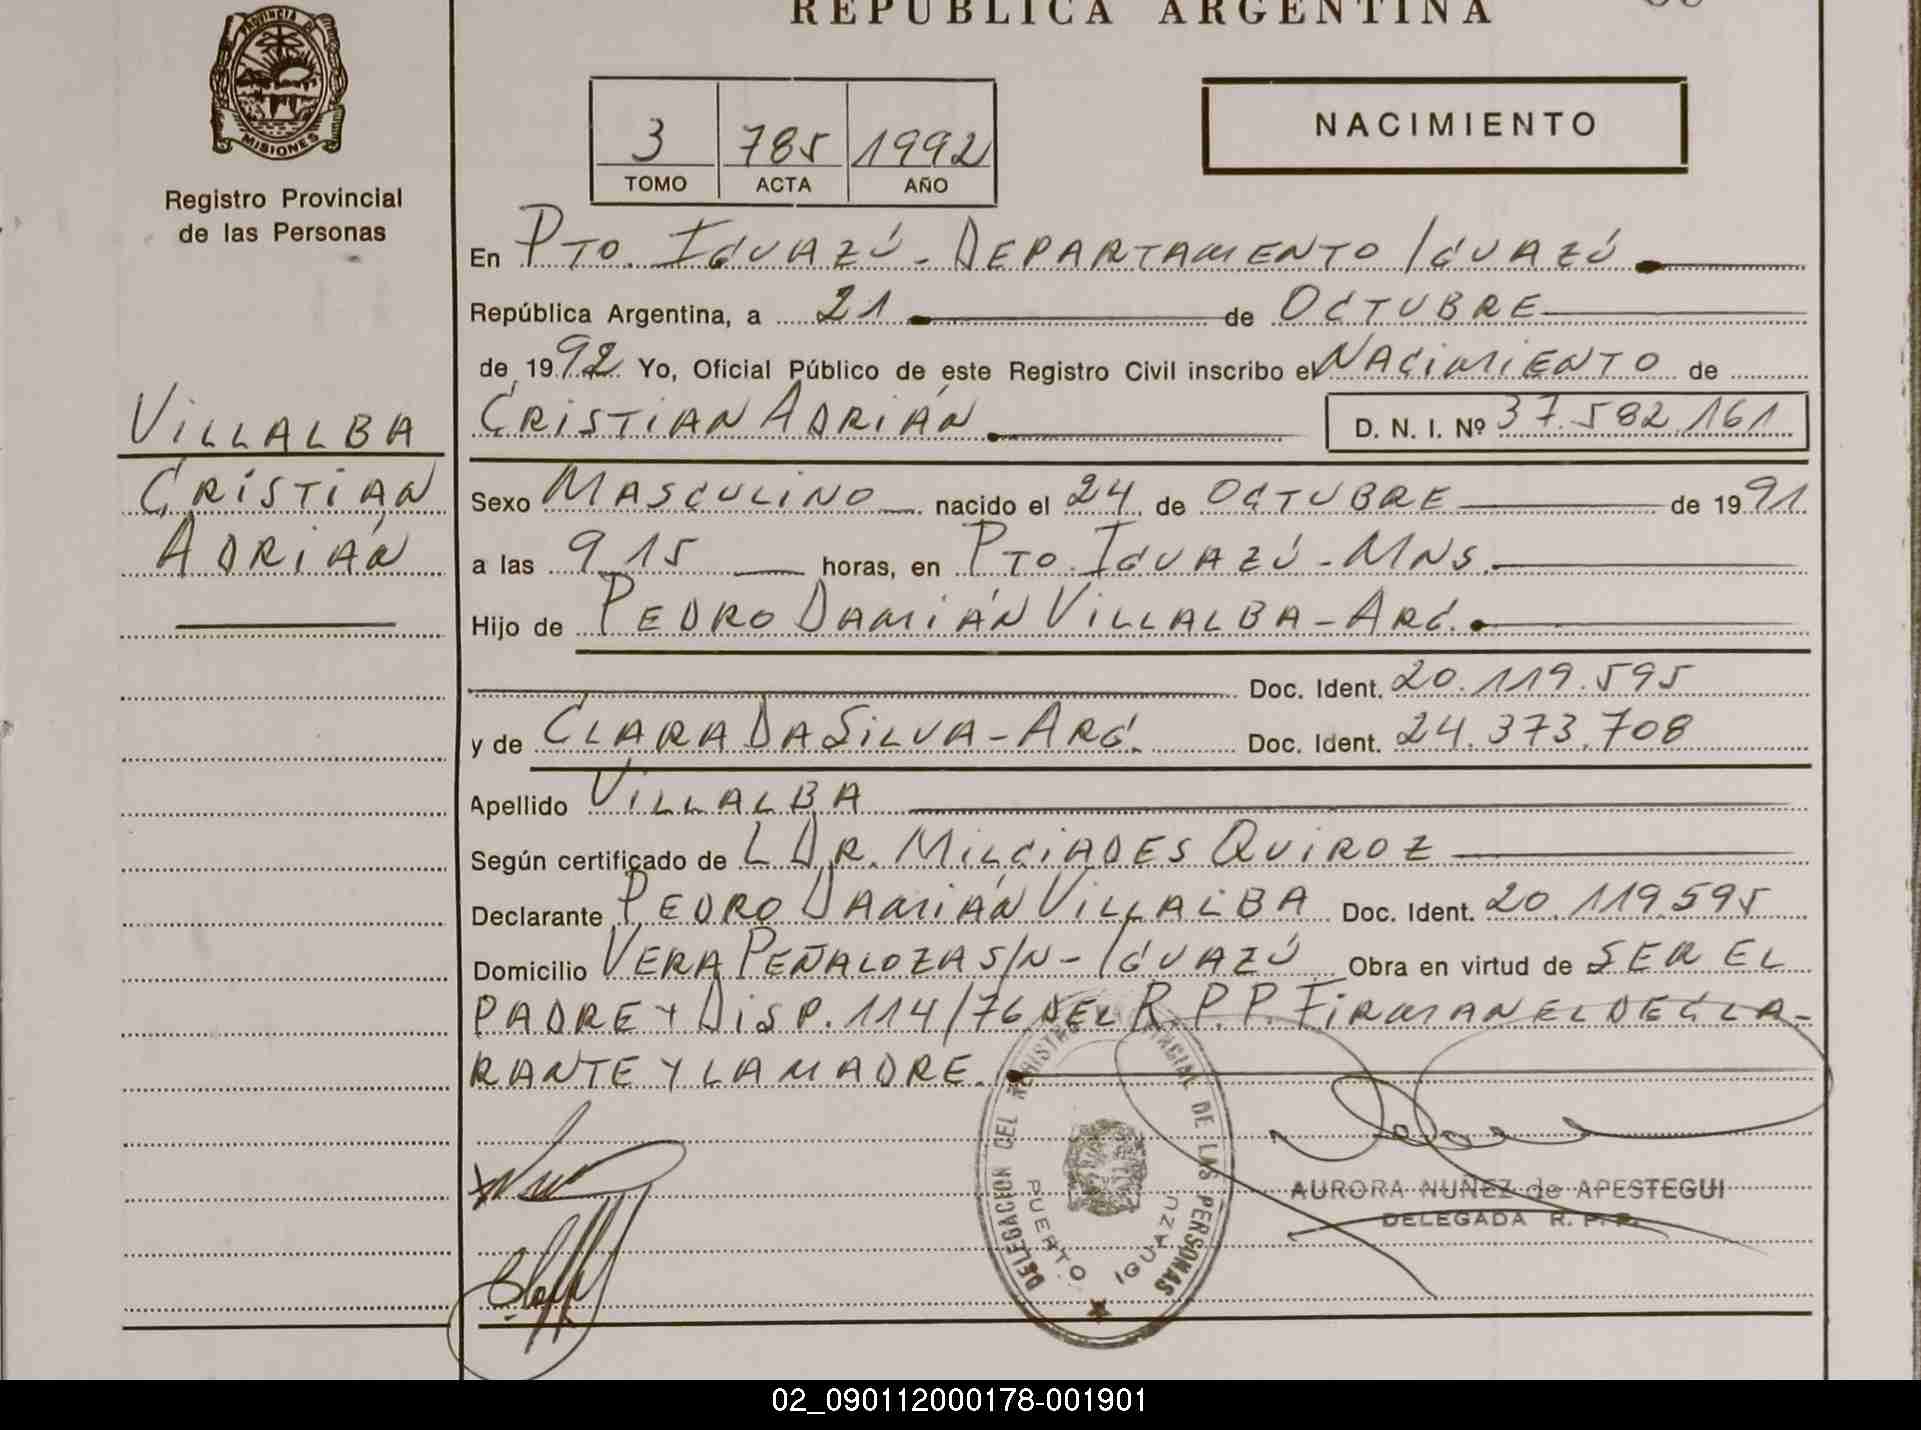 REPUBLICA ARGENTINA
PROVINCIA DE
MISIONES
Registro Provincial
de las Personas
3 785 1992
TOMO ACTA AÑO
NACIMIENTO
En PTO. IGUAZÚ - DEPARTAMENTO IGUAZÚ
República Argentina, a 21 de OCTUBRE
de 1992 Yo, Oficial Público de este Registro Civil inscribo el NACIMIENTO de
CRISTIAN ADRIÁN D. N. I. Nº 37.582.161
VILLALBA
CRISTIAN
ADRIÁN
Sexo MASCULINO nacido el 24 de OCTUBRE de 1991
a las 9 15 horas, en PTO. IGUAZÚ - MNS.
Hijo de PEDRO DAMIÁN VILLALBA - ARG.
Doc. Ident. 20.119.595
y de CLARA DA SILVA - ARG. Doc. Ident. 24.373.708
Apellido VILLALBA
Según certificado de L DR. MILCIADES QUIROZ
Declarante PEDRO DAMIÁN VILLALBA Doc. Ident. 20.119.595
Domicilio VERA PEÑALOZA S/N - IGUAZÚ Obra en virtud de SER EL
PADRE Y DISP. 114/76 DEL R.P.P. FIRMAN EL DECLA-
RANTE Y LA MADRE.
DELEGACION DEL REGISTRO PROVINCIAL DE LAS PERSONAS
PUERTO IGUAZU
AURORA NUÑEZ de APESTEGUI
DELEGADA R. P. P.
02_090112000178-001901